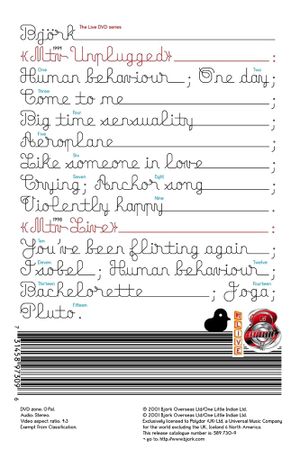 Björk The Live DVD series
«Mtv Unplugged» 1994 :
One Two
Human behaviour ; One day;
Three
Come to me ;
Four
Big time sensuality ;
Five
Aeroplane ;
Six
Like someone in love ;
Seven Eight
Crying; Anchor song ;
Nine
Violently happy
«Mtv Live» 1998 :
Ten
You've been flirting again ;
Eleven Twelve
Isobel ; Human behaviour ;
Thirteen Fourteen
Bachelorette ; Joga;
Fifteen
Pluto.
DVD zone: 0 Pal.
Audio: Stereo.
Video aspect ratio: 4:3
Exempt from Classification.
℗ 2001 Bjork Overseas Ltd/One Little Indian Ltd.
© 2001 Bjork Overseas Ltd/One Little Indian Ltd.
Exclusively licensed to Polydor (UK) Ltd. a Universal Music Company
for the world excluding the UK, Iceland & North America.
This release catalogue number is: 589 730-9
¬ go to: http://www.bjork.com